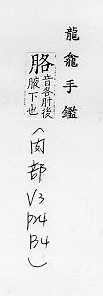 龍龕手鑑
胳音各肝後
腋下也
(肉部
V3
P24
B4)